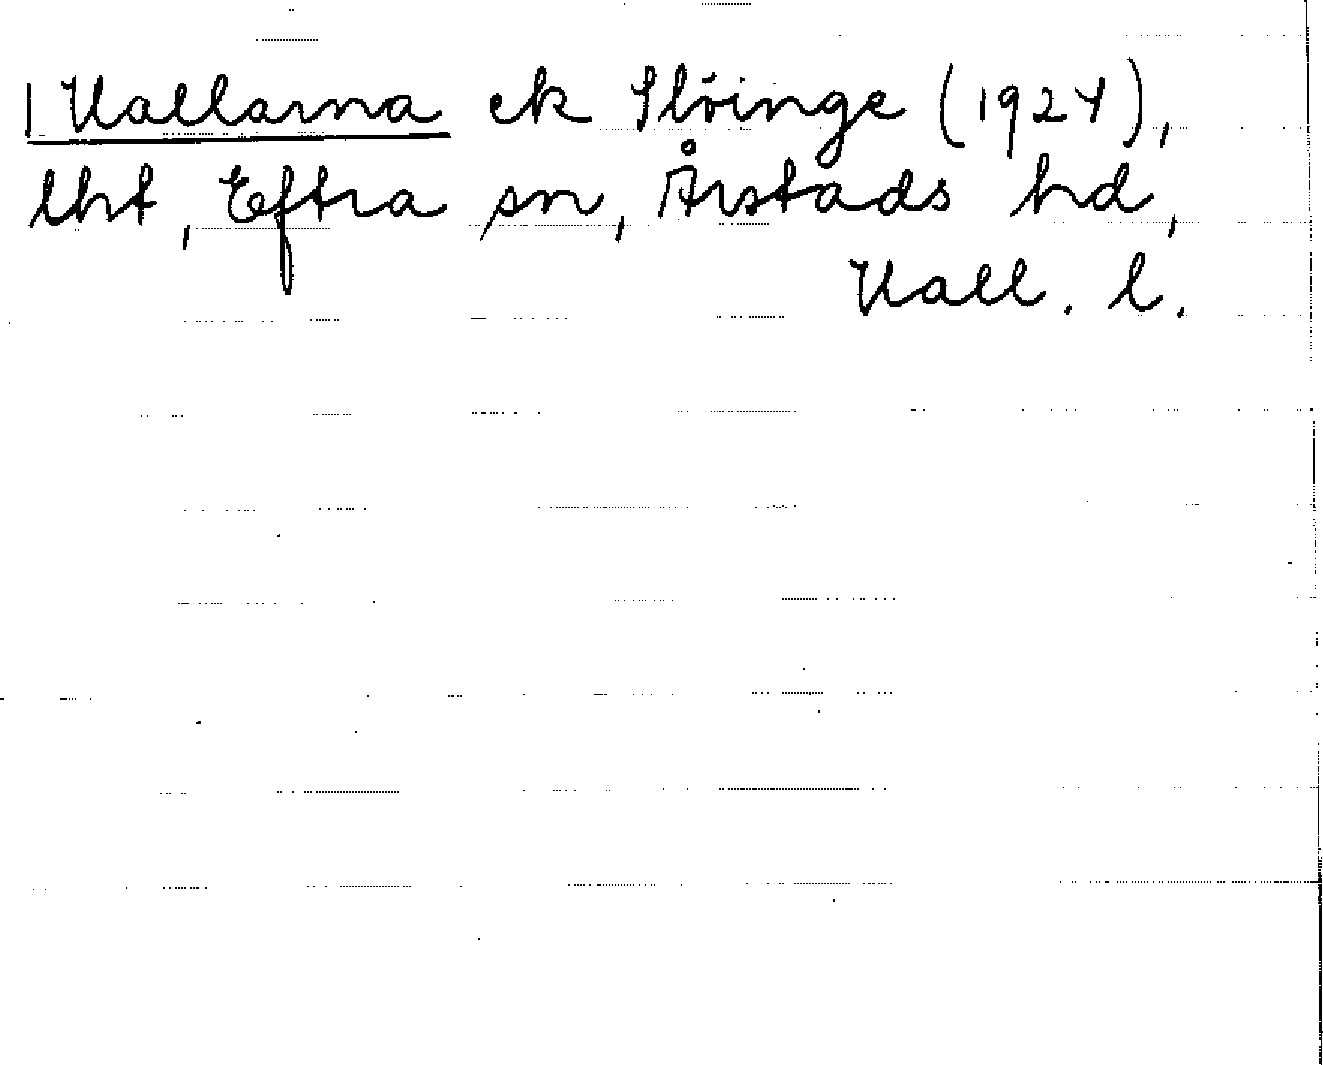 | Hallarna ek Slöinge (1924),
lht, Eftra sn, Årstads hd,
Hall. l.